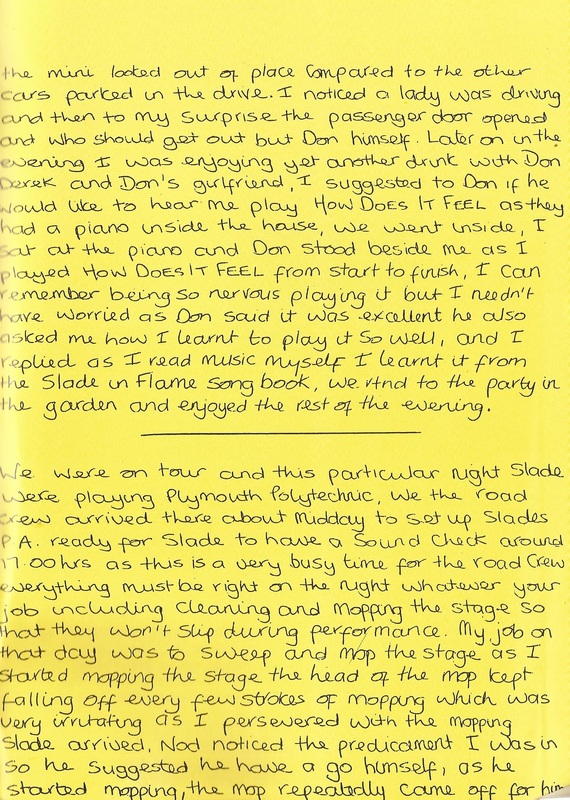 the mini looked out of place compared to the other
cars parked in the drive. I noticed a lady was driving
and then to my surprise the passenger door opened
and who should get out but Don himself. Later on in the
evening I was enjoying yet another drink with Don
Derek and Don's girlfriend, I suggested to Don if he
would like to hear me play HOW DOES IT FEEL as they
had a piano inside the house, we went inside, I
sat at the piano and Don stood beside me as I
played HOW DOES IT FEEL from start to finish, I can
remember being so nervous playing it but I needn't
have worried as Don said it was excellent he also
asked me how I learnt to play it so well, and I
replied as I read music myself I learnt it from
the Slade in Flame song book, we rtnd to the party in
the garden and enjoyed the rest of the evening.
We were on tour and this particular night Slade
were playing Plymouth Polytechnic, we the road
crew arrived there about Midday to set up Slades
P.A. ready for Slade to have a Sound Check around
17.00 hrs as this is a very busy time for the road crew
everything must be right on the night whatever your
job including cleaning and mopping the stage so
that they won't slip during performance. My job on
that day was to sweep and mop the stage as I
started mopping the stage the head of the mop kept
falling off every few strokes of mopping which was
very irritating as I persevered with the mopping
Slade arrived, Nod noticed the predicament I was in
so he suggested he have a go himself, as he
started mopping, the mop repeatedly came off for him